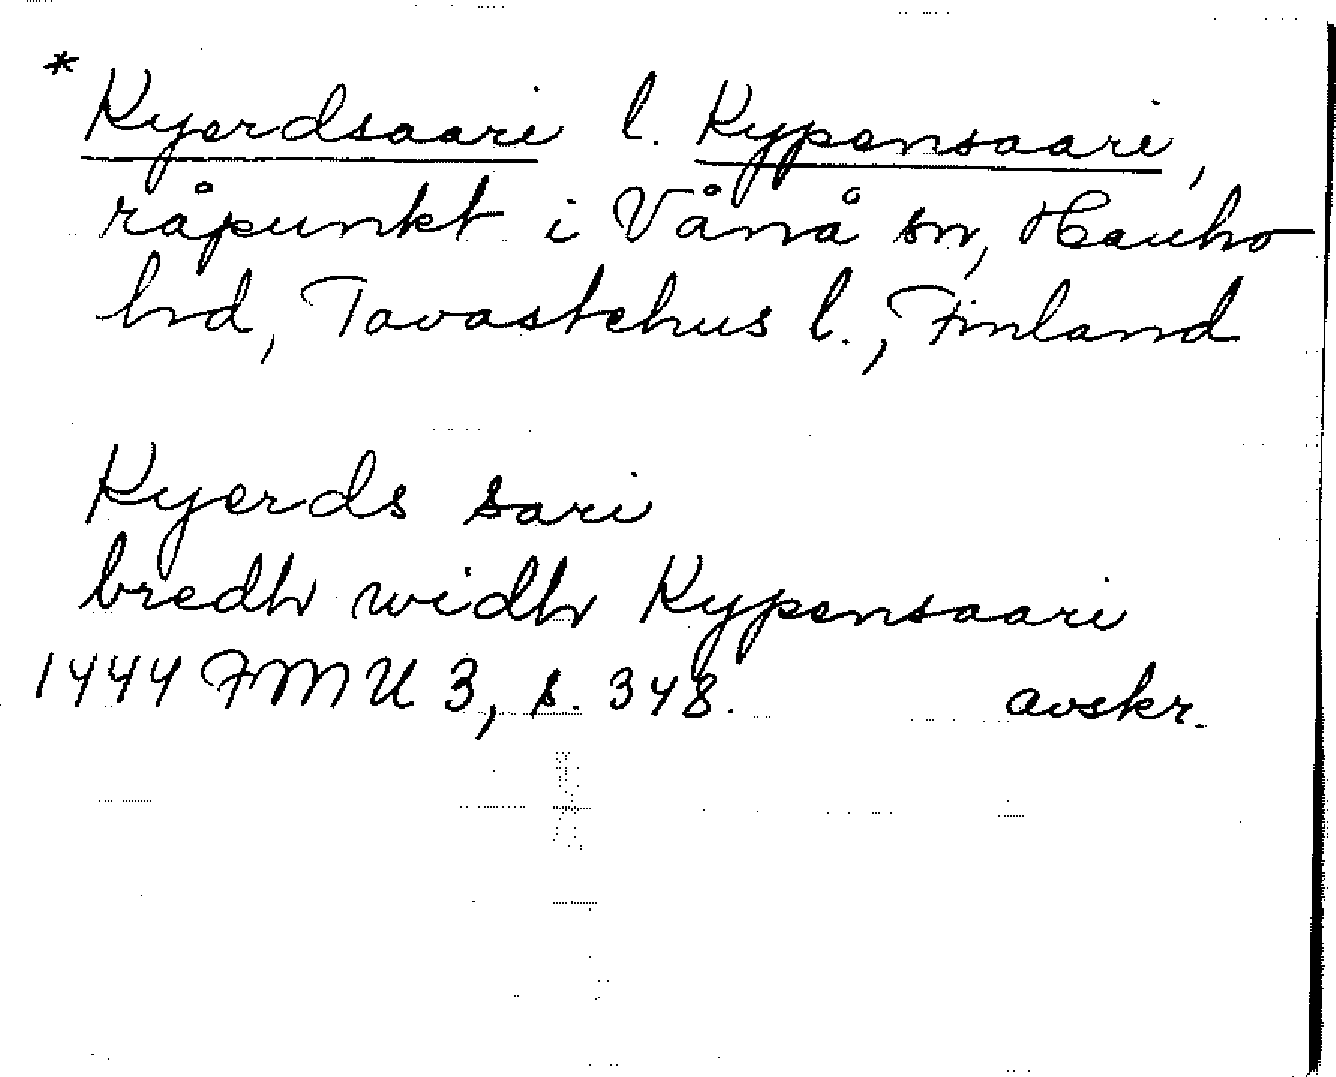 * Kyerdsaari l. Kypensaari,
råpunkt i Vånå sn, Hauho
hd, Tavastehus l., Finland
Kyerds sari
bredh widh Kypensaari
1444 FMU 3, s. 348. avskr.